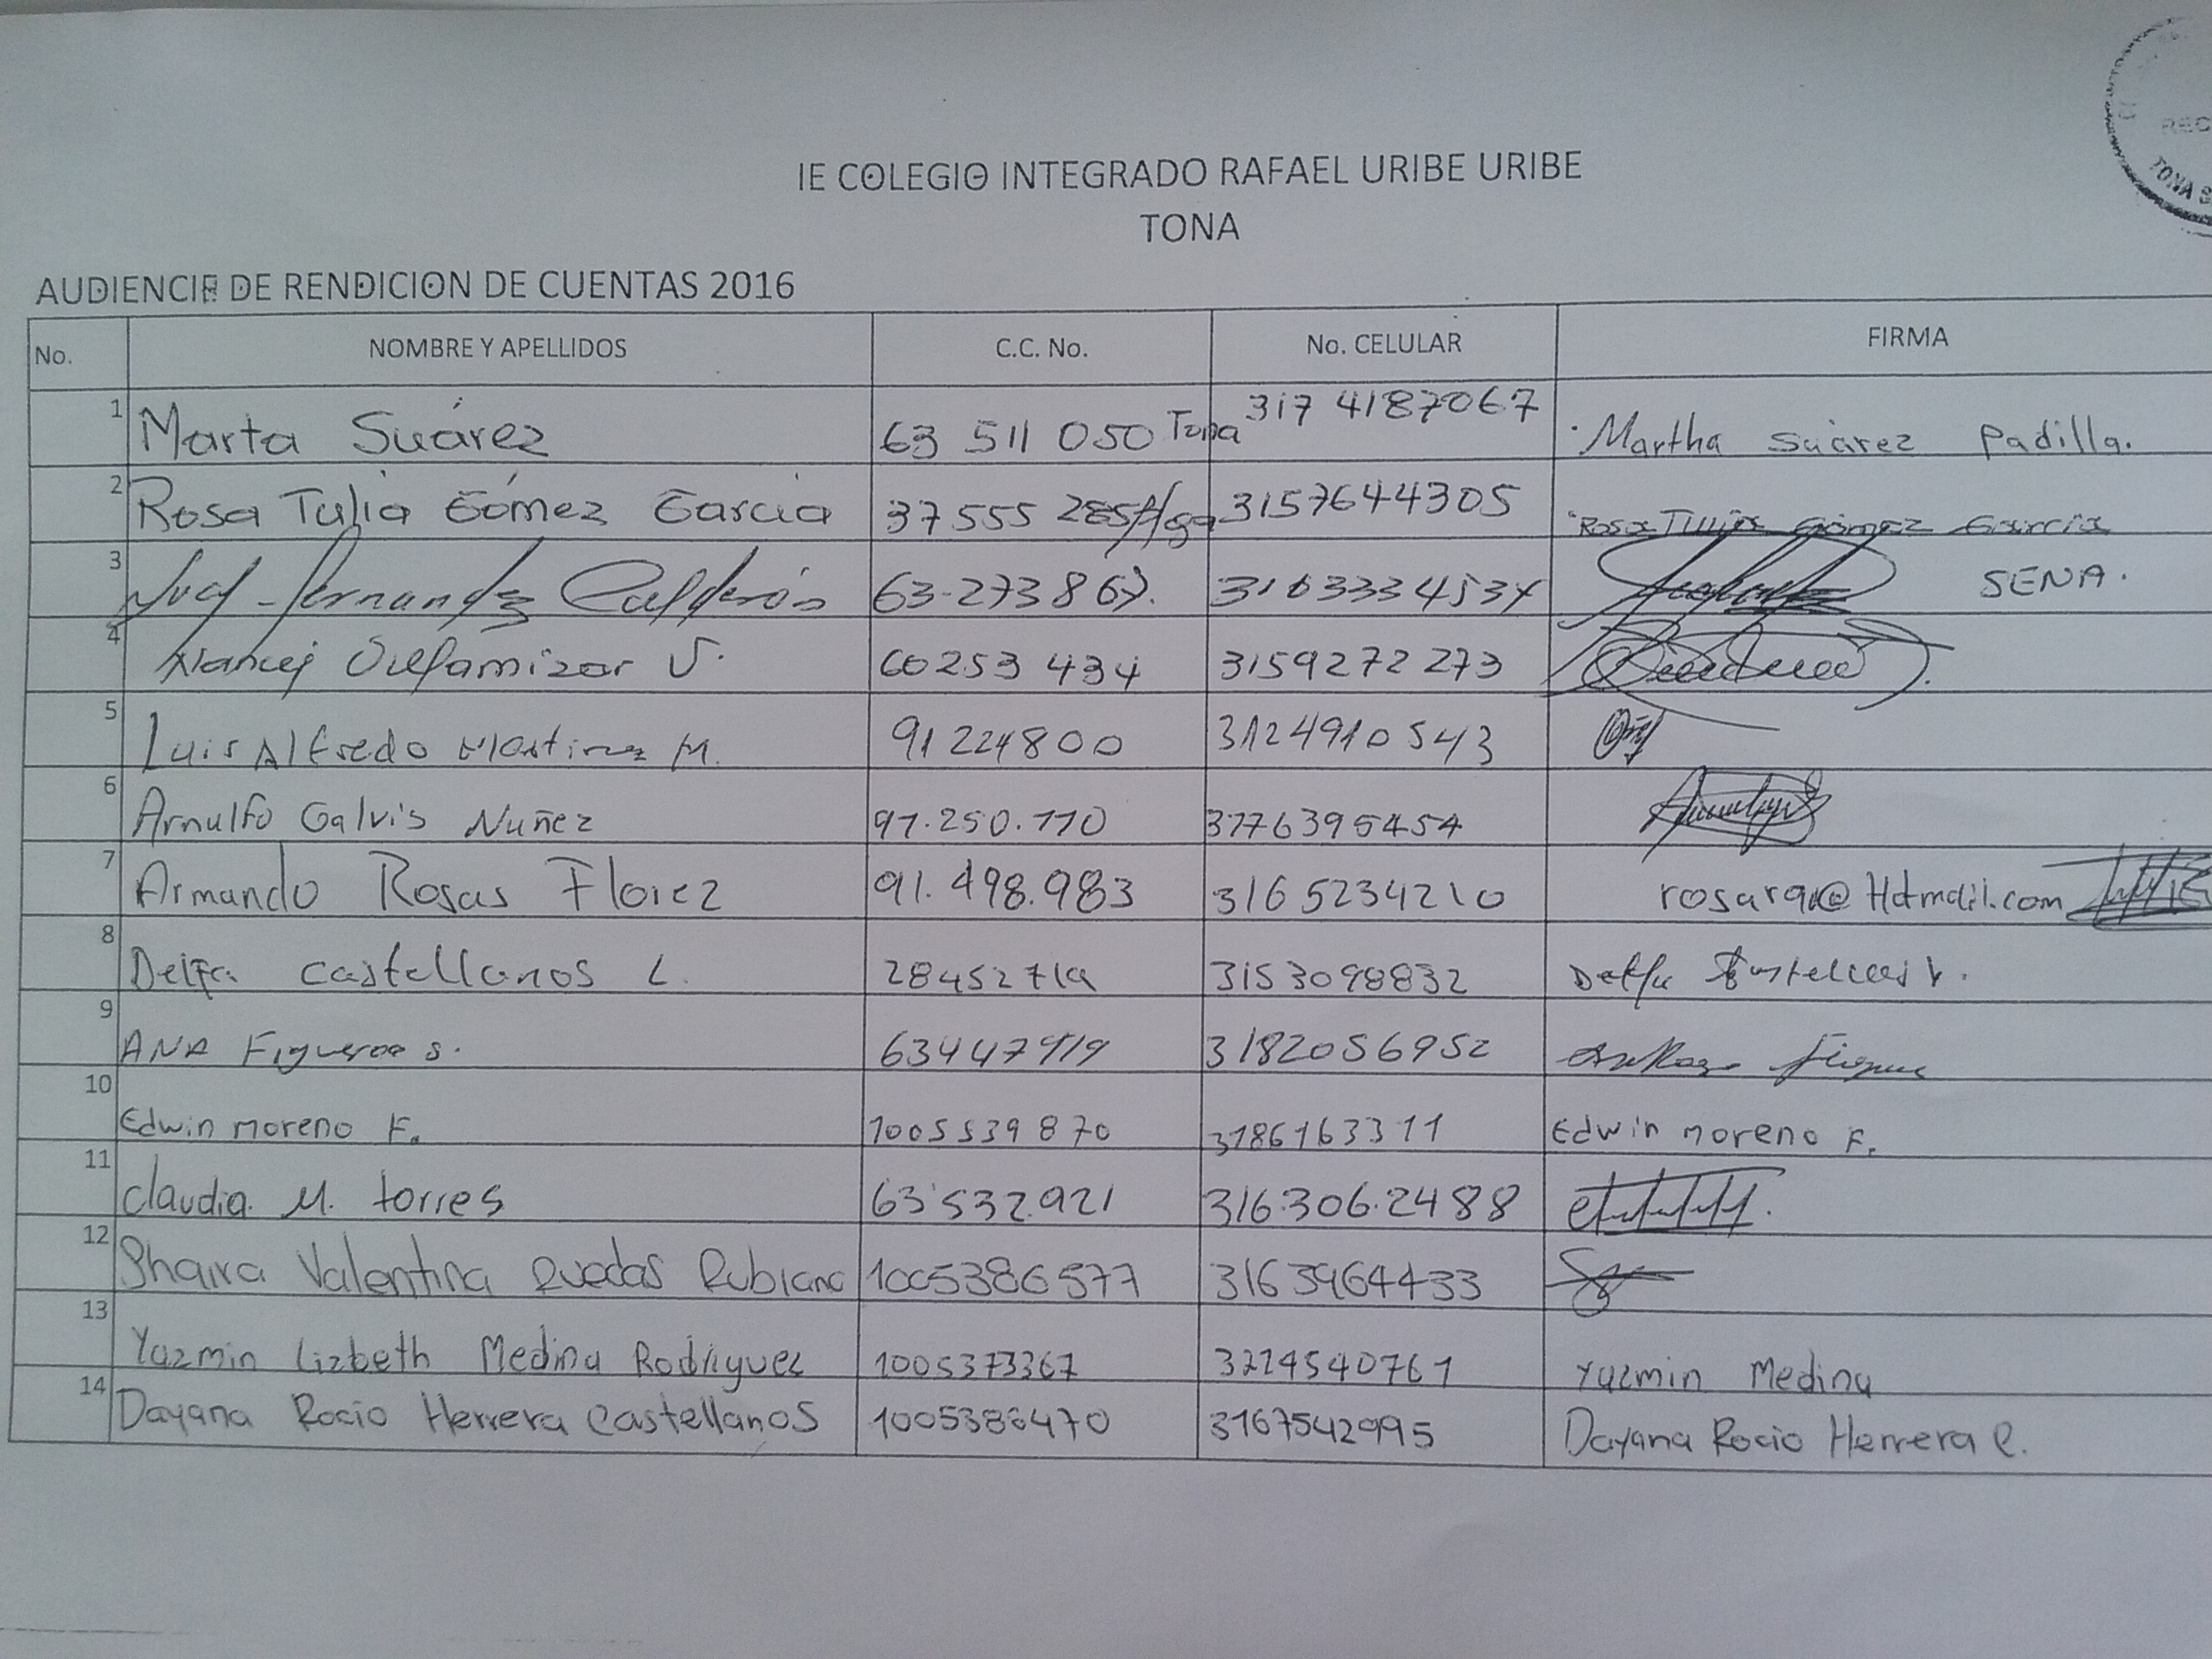 REC
TONA S
IE COLEGIO INTEGRADO RAFAEL URIBE URIBE
TONA
AUDIENCIA DE RENDICION DE CUENTAS 2016
No. NOMBRE Y APELLIDOS C.C. No. No. CELULAR FIRMA
1 Marta Suárez 63 511 050 Tona 317 4187067 Martha Suárez Padilla.
2 Rosa Tulia Gómez Garcia 37 555 285 3157644305 Rosa Tulia Gómez Garcia
3 Hernandez Calderón 63-273867. SENA.
4 Nancy Villamizar V. 60253 434 3159272273
5 Luis Alfredo Martinez M. 91224800 3124910543
6 Arnulfo Galvis Nuñez 91.250.110 3176395454
7 Armando Rosas Florez 91.498.983 3165234210
8 Delfa Castellanos L. 3153098832 Delfa
9 ANA Figueroa S. 3182056952
10 Edwin moreno F. 1005539870 3186163311 Edwin moreno F.
11 Claudia. M. torres 63'532.921 316.306.2488
12 Valentina Ruedas Rubiano 1005386577 3163964433
13 Yazmin Lizbeth Medina Rodriguez 1005373367 3214540761 Yazmin Medina
14 Dayana Rocio Herrera Castellanos 1005386470 3167542995 Dayana Rocio Herrera C.